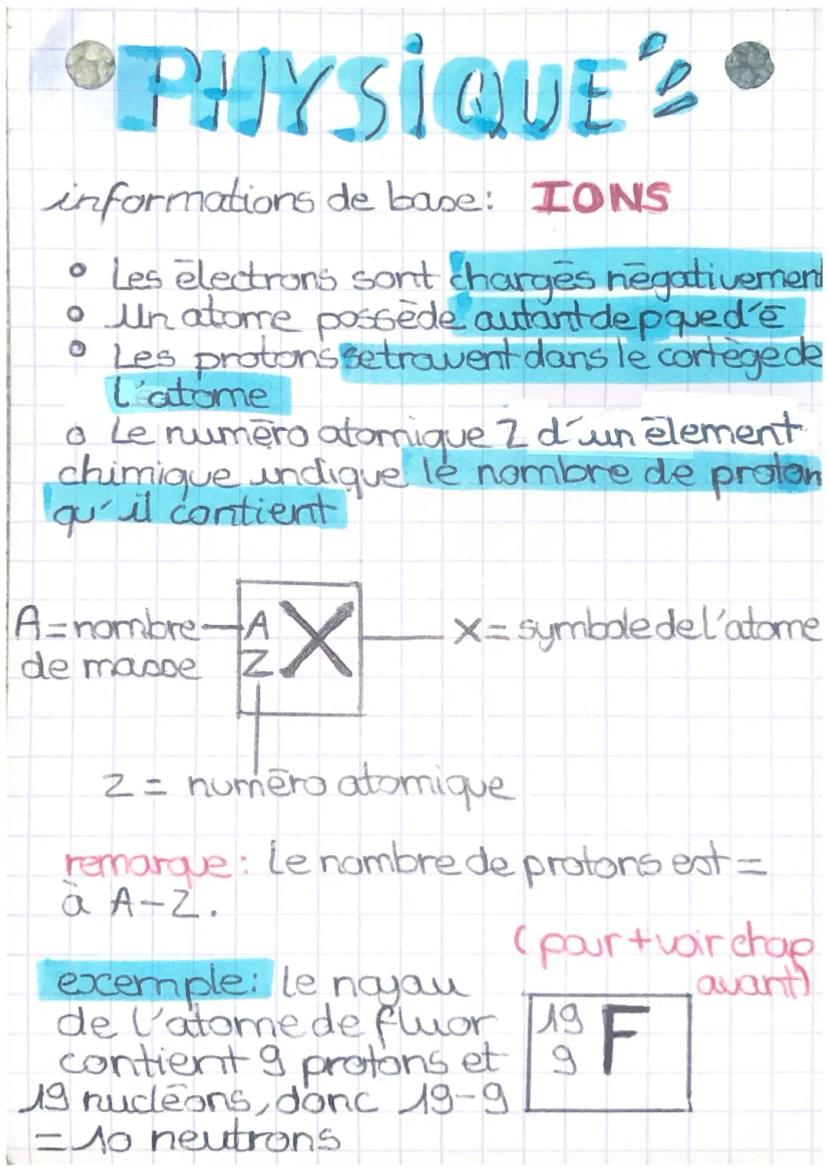 PHYSIQUE
informations de base: IONS
° Les électrons sont chargés négativement
° Un atome possède autant de p que d'é
° Les protons se trouvent dans le cortège de
l'atome
° Le numéro atomique Z d'un élement
chimique indique le nombre de proton
qu'il contient
A = nombre
de masse
A
Z
X
X = symbole de l'atome
Z = numéro atomique
remarque: Le nombre de protons est =
à A-Z.
(pour + voir chap
avant)
exemple: Le noyau
de l'atome de fluor
contient 9 protons et
19 nucléons, donc 19-9
= 10 neutrons
19
9
F